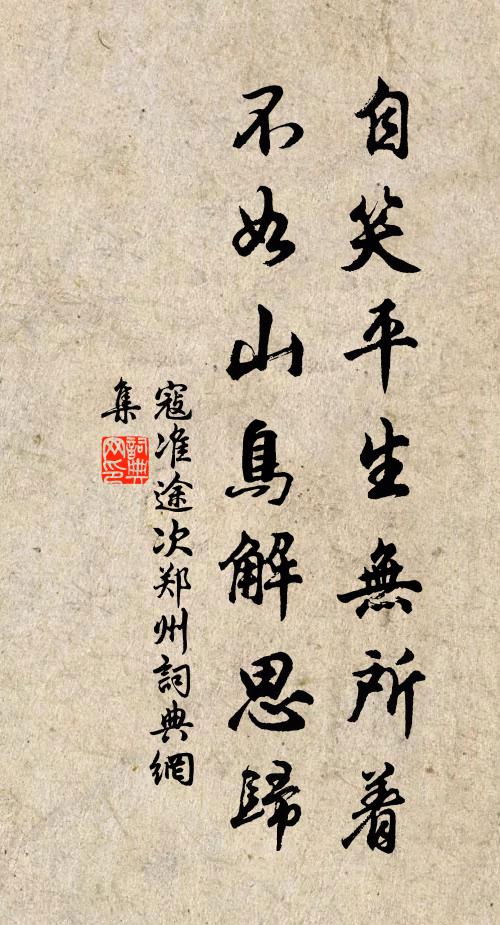 自笑平生無所着
不如山鳥解思歸
寇准途次郑州詞典網
集
詞典網印